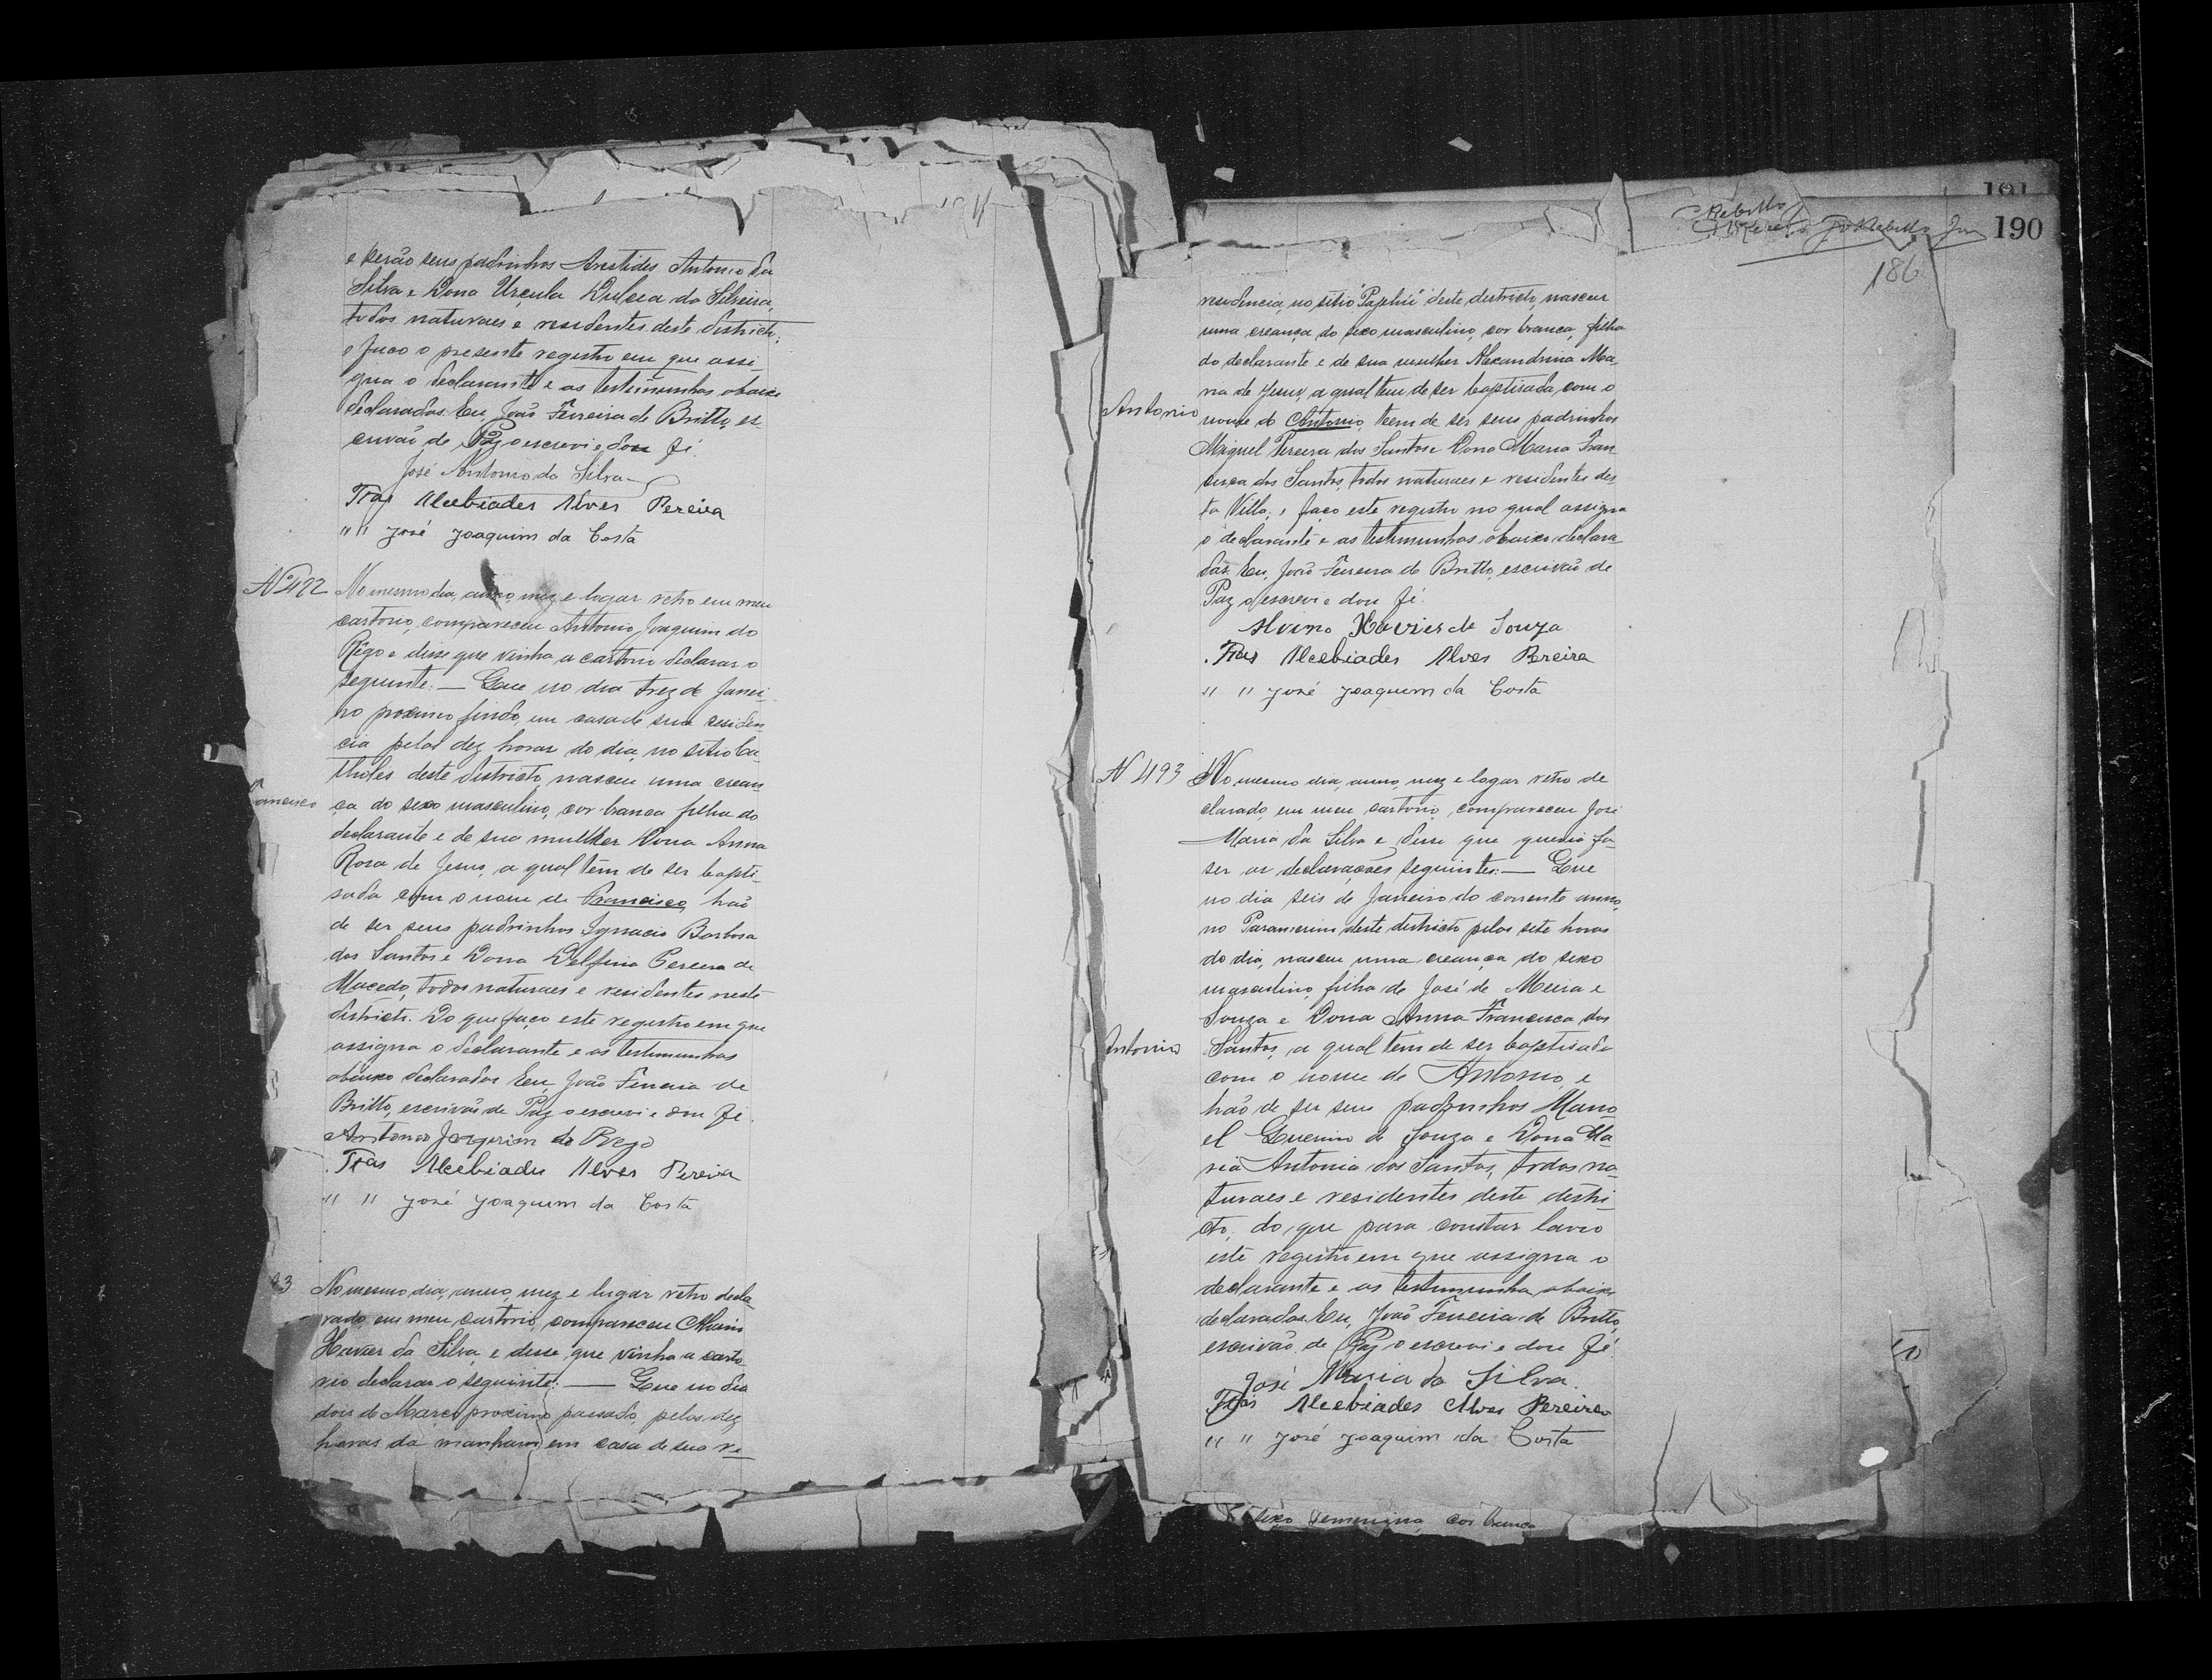 e serão seus padrinhos Aristides Antonio da
Silva e Dona Urcula Dulcea da Silveira,
todos naturaes e residentes deste districto;
e faço o presente registro em que assi-
gna o declarante e as testimunhas abaixo
declaradas. Eu, João Ferreira de Britto, es-
crivão de Paz o escrevi e dou fé.
José Antonio da Silva
Tras Alcebiades Alves Pereira
" " José Joaquim da Costa
Nº 492
No mesmo dia, anno, mez e logar retro em meu
cartorio, compareceu Antonio Joaquim do
Rêgo e disse que vinha a cartorio declarar o
seguinte: — Que no dia trez de Janei-
ro proximo findo, em casa de sua residen-
cia pelas dez horas do dia, no sitio Ca-
tholes deste districto, nasceu uma crean-
Francisco
ça do sexo masculino, cor branca filha do
declarante e de sua mulher Dona Anna
Rosa de Jesus, a qual têm de ser bapti-
sada com o nome de Francisco, hão
de ser seus padrinhos Ignacio Barbosa
dos Santos e Dona Delfina Pereira de
Macedo, todos naturaes e residentes neste
districto. Do que faço este registro em que
assigna o declarante e as testimunhas
abaixo declaradas. Eu, João Ferreira de
Britto, escrivão de Paz o escrevi e dou fé.
Antonio Joaquim do Rego
Tras Alcebiades Alves Pereira
" " José Joaquim da Costa
93
No mesmo dia, anno, mez e lugar retro decla-
rado, em meu cartorio, compareceu Alvino
Xavier da Silva, e disse que vinha a carto-
rio declarar o seguinte: — Que no dia
dois de Março proximo passado, pelas dez
horas da manham em casa de sua re-
Rebello
190
186
residencia, no sitio "Pajehú" deste districto, nasceu
uma creança do sexo masculino, cor branca, filha
do declarante e de sua mulher Alexandrina Ma-
ria de Jesus, a qual tem de ser baptisada com o
Antonio
nome de Antonio, teem de ser seus padrinhos
Miguel Pereira dos Santos e Dona Maria Fran-
cisca dos Santos, todos naturaes e residentes des-
ta Villa; e faço este registro no qual assigna
o declarante e as testimunhas abaixo declara-
das. Eu, João Ferreira de Britto, escrivão de
Paz o escrevi e dou fé.
Alvino Xavier de Souza
Tras Alcebiades Alves Pereira
" " José Joaquim da Costa
N 493
No mesmo dia, anno, mez e logar retro de
clarado, em meu cartorio, compareceu José
Maria da Silva e disse que queria fa-
ser as declarações seguintes: — Que
no dia seis de Janeiro do corrente anno,
no Paramirim deste districto pelas sete horas
do dia, nasceu uma creança do sexo
masculino, filha de José de Meira e
Souza e Dona Anna Francisca dos
Antonio
Santos, a qual têm de ser baptisada
com o nome de Antonio, e
hão de ser seus padrinhos Mano-
el Guerino de Souza e Dona Ma-
ria Antonia dos Santos, todos na-
turaes e residentes deste distri-
cto, do que para constar lavro
este registro em que assigna o
declarante e as testimunha abaixo
declaradas. Eu, João Ferreira de Britto,
escrivão de Paz o escrevi e dou fé
José Maria da Silva.
Tras Alcebiades Alves Pereira
" " José Joaquim da Costa
sexo femenino, cor branca